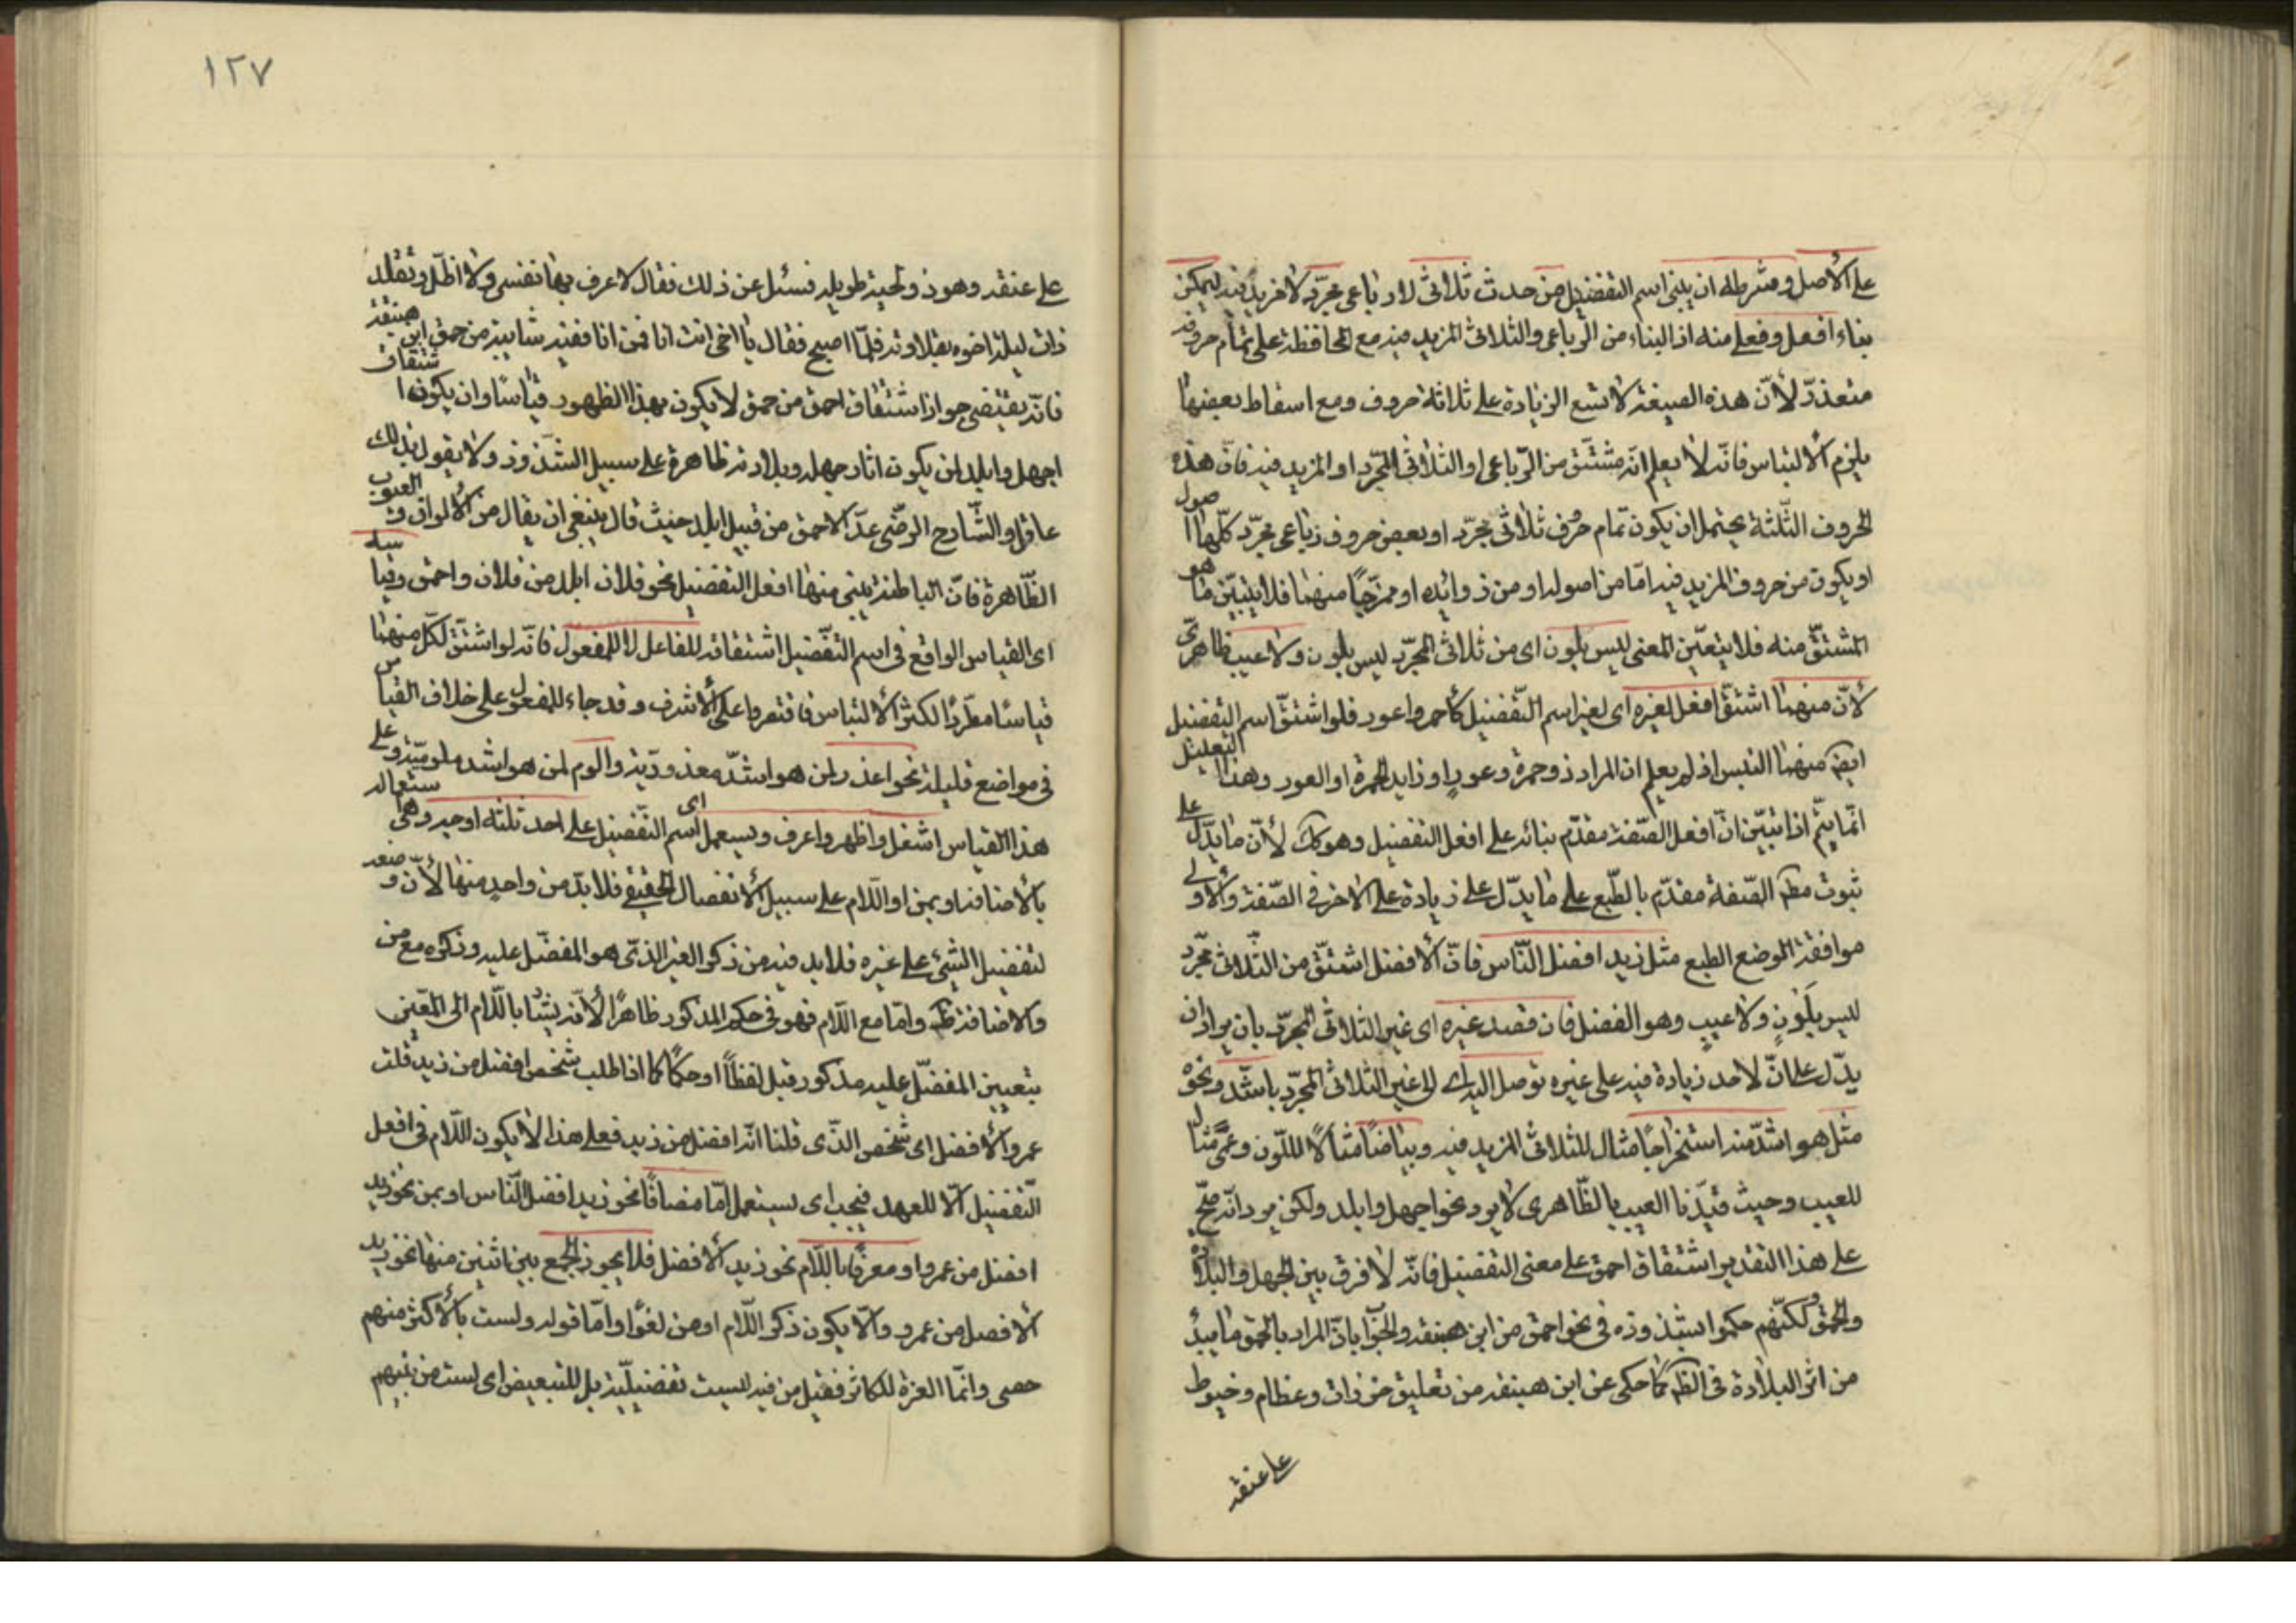 على الأصل وشرطه ان يبنى اسم التفضيل من حدث ثلاثى لا رباعى مجرّد لا مزيد فيه ليمكن
بناء افعل وفعلى منه اذ البناء من الرباعى والثلاثى المزيد فيه مع المحافظة على تمام حروفه
متعذرّ لأنّ هذه الصيغة لا تسع الزيادة على ثلاثة حروف ومع اسقاط بعضها
يلزم الالتباس فانّه لا يعلم انه مشتّق من الرّباعى او الثلاثى المجّرد او المزيد فيه فانّ هذه
الحروف الثّلثة يحتمل ان يكون تمام حرف ثلاثى مجرّد او بعض حروف رباعى مجرّد كلّها اصول
او يكون من حروف المزيد فيه امّا من اصوله او من زوائده او ممزّجا منهما فلا يتبيّن ما هو
المشتّق منه فلا يتعيّن المعنى ليس بلون اى من ثلاثى المجرّد ليس بلون ولا عيب ظاهرىّ
لأنّ منهما اشتقّ افعل لغيره اى لغير اسم التّفضيل كأحمر واعور فلو اشتقّ اسم التفضيل
ايضا منهما التبس اذ لم يعلم ان المراد ذو حمرة وعور او زايد الحمرة او العور وهذا التعليل
انّما يتمّ اذا تبيّن انّ افعل الصّفة مقدّم بنائه على افعل التفضيل وهو كك لأنّ ما يدّل على
ثبوت مطم الصّفة مقدّم بالطّبع على ما يدّل على زيادة على الاخر فى الصّفة والاولى
موافقة الوضع الطبع مثل زيد افضل النّاس فانّ الافضل اشتّق من الثّلاثى مجّرد
ليس بلون ولا عيب وهو الفضل فان قصد غيره اى غير الثلاثى المجرّد بان يراد ان
يدّل على انّ لاحد زيادة فيه على غيره توصل اليه اى الى غير الثلاثى المجرّد باشدّ ونحوه
مثل هو اشدّ منه استخراجا مثال للثلاثى المزيد فيه وبياضا مثالا للّون وعمىً مثال
للعيب وحيث قيّدنا العيب بالظّاهرى لا يرد نحو اجهل وابلد ولكن يرد انّه يصّح
على هذا التقدير اشتقاق احمق على معنى التفضيل فانّه لا فرق بين الجهل والبلادة
والحمق ولكنّهم حكموا بشذوذه فى نحو احمق من ابن هبنقه والجواب انّ المراد بالحمق ما يبدُ
من اثر البلادة فى الظم كما حكى عن ابن هبنقه من تعليق خرزات وعظام وخيوط
على عنقه
١٢٧
على عنقه وهو ذو لحية طويله فسئل عن ذلك فقال لاعرف بها نفسى ولا اظلّ وتقلد
ذات ليلة اخوه بقلاوته فلمّا اصبح فقال يا اخى انت انا فمن انا ففيه شايبة من حمق ابن هبنقة
فانّه يقتضى جواز اشتقاق احمق من حمق لا يكون بهذا الظهور قياسا وان يكون اشتقاق
اجهل وابلد لمن يكون اثار جهله وبلادته ظاهرة على سبيل الشّذوذ ولا يقول بذلك
عاقل والشّارح الرضّى عدّ الاحمق من قبيل ابلد حيث قال ينبغى ان يقال من الألوان والعيوب
الظّاهرة فانّ الباطنة يبنى منها افعل التفضيل نحو فلان ابلد من فلان واحمق وقياسه
اى القياس الواقع فى اسم التفّضيل اشتقاقه للفاعل لا للمفعول فانّه لو اشتّق لكلّ منهما
قياسًا مطّردًا لكثر الالتباس فاقتصروا على الأشرف وقد جاء للمفعول على خلاف القياس
فى مواضع قليلة نحو اعذر لمن هو اشدّ معذوريّة والوم لمن هو اشد ملوميّة وعلى
هذا القياس اشغل واظهر واعرف ويستعمل اى اسم التّفضيل على احد ثلثة اوجه وهى استعماله
بالأضافة او بمن او اللّام على سبيل الأنفصال الحقيقى فلا بدّ من واحد منها لأنّ وضعه
لتفضيل الشّئ على غيره فلا بد فيه من ذكر الغير الذّى هو المفضّل عليه وذكره مع من
والاضافة ظم وامّا مع اللّام فهو فى حكم المذكور ظاهرًا لأنّه يشار باللّام الى المعّين
بتعيين المفضّل عليه مذكور قبل لفظاً او حكماً كما اذا طلب شخص افضل من زيد قلت
عمرو الأفضل اى شخص الذّى قلنا انّه افضل من زيد فعلى هذا لا يكون اللّام فى افعل
التّفضيل الّا للعهد فيجب اى يستعمل امّا مضافا نحو زيد افضل النّاس او بمن نحو زيد
افضل من عمرو او معرفا باللّام نحو زيد الأفضل فلا يجوز الجمع بين اثنين منها نحو زيد
الأفضل من عمرو والّا يكون ذكر اللّام او من لغوًا وامّا قوله ولست بالأكثر منهم
حصى وانّما العزة للكاثر فقيل من فيه ليست تفضيليّة بل للتبعيض اى لست من بينهم